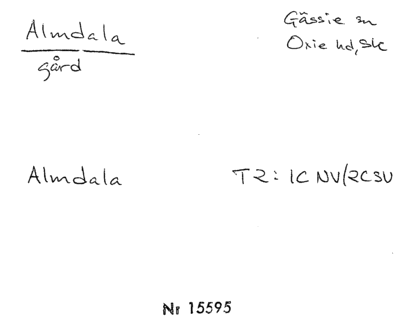 Almdala
gård
Gässie sn
Oxie hd, Sk
Almdala
T2: 1C NV/2C SV
Nr 15595